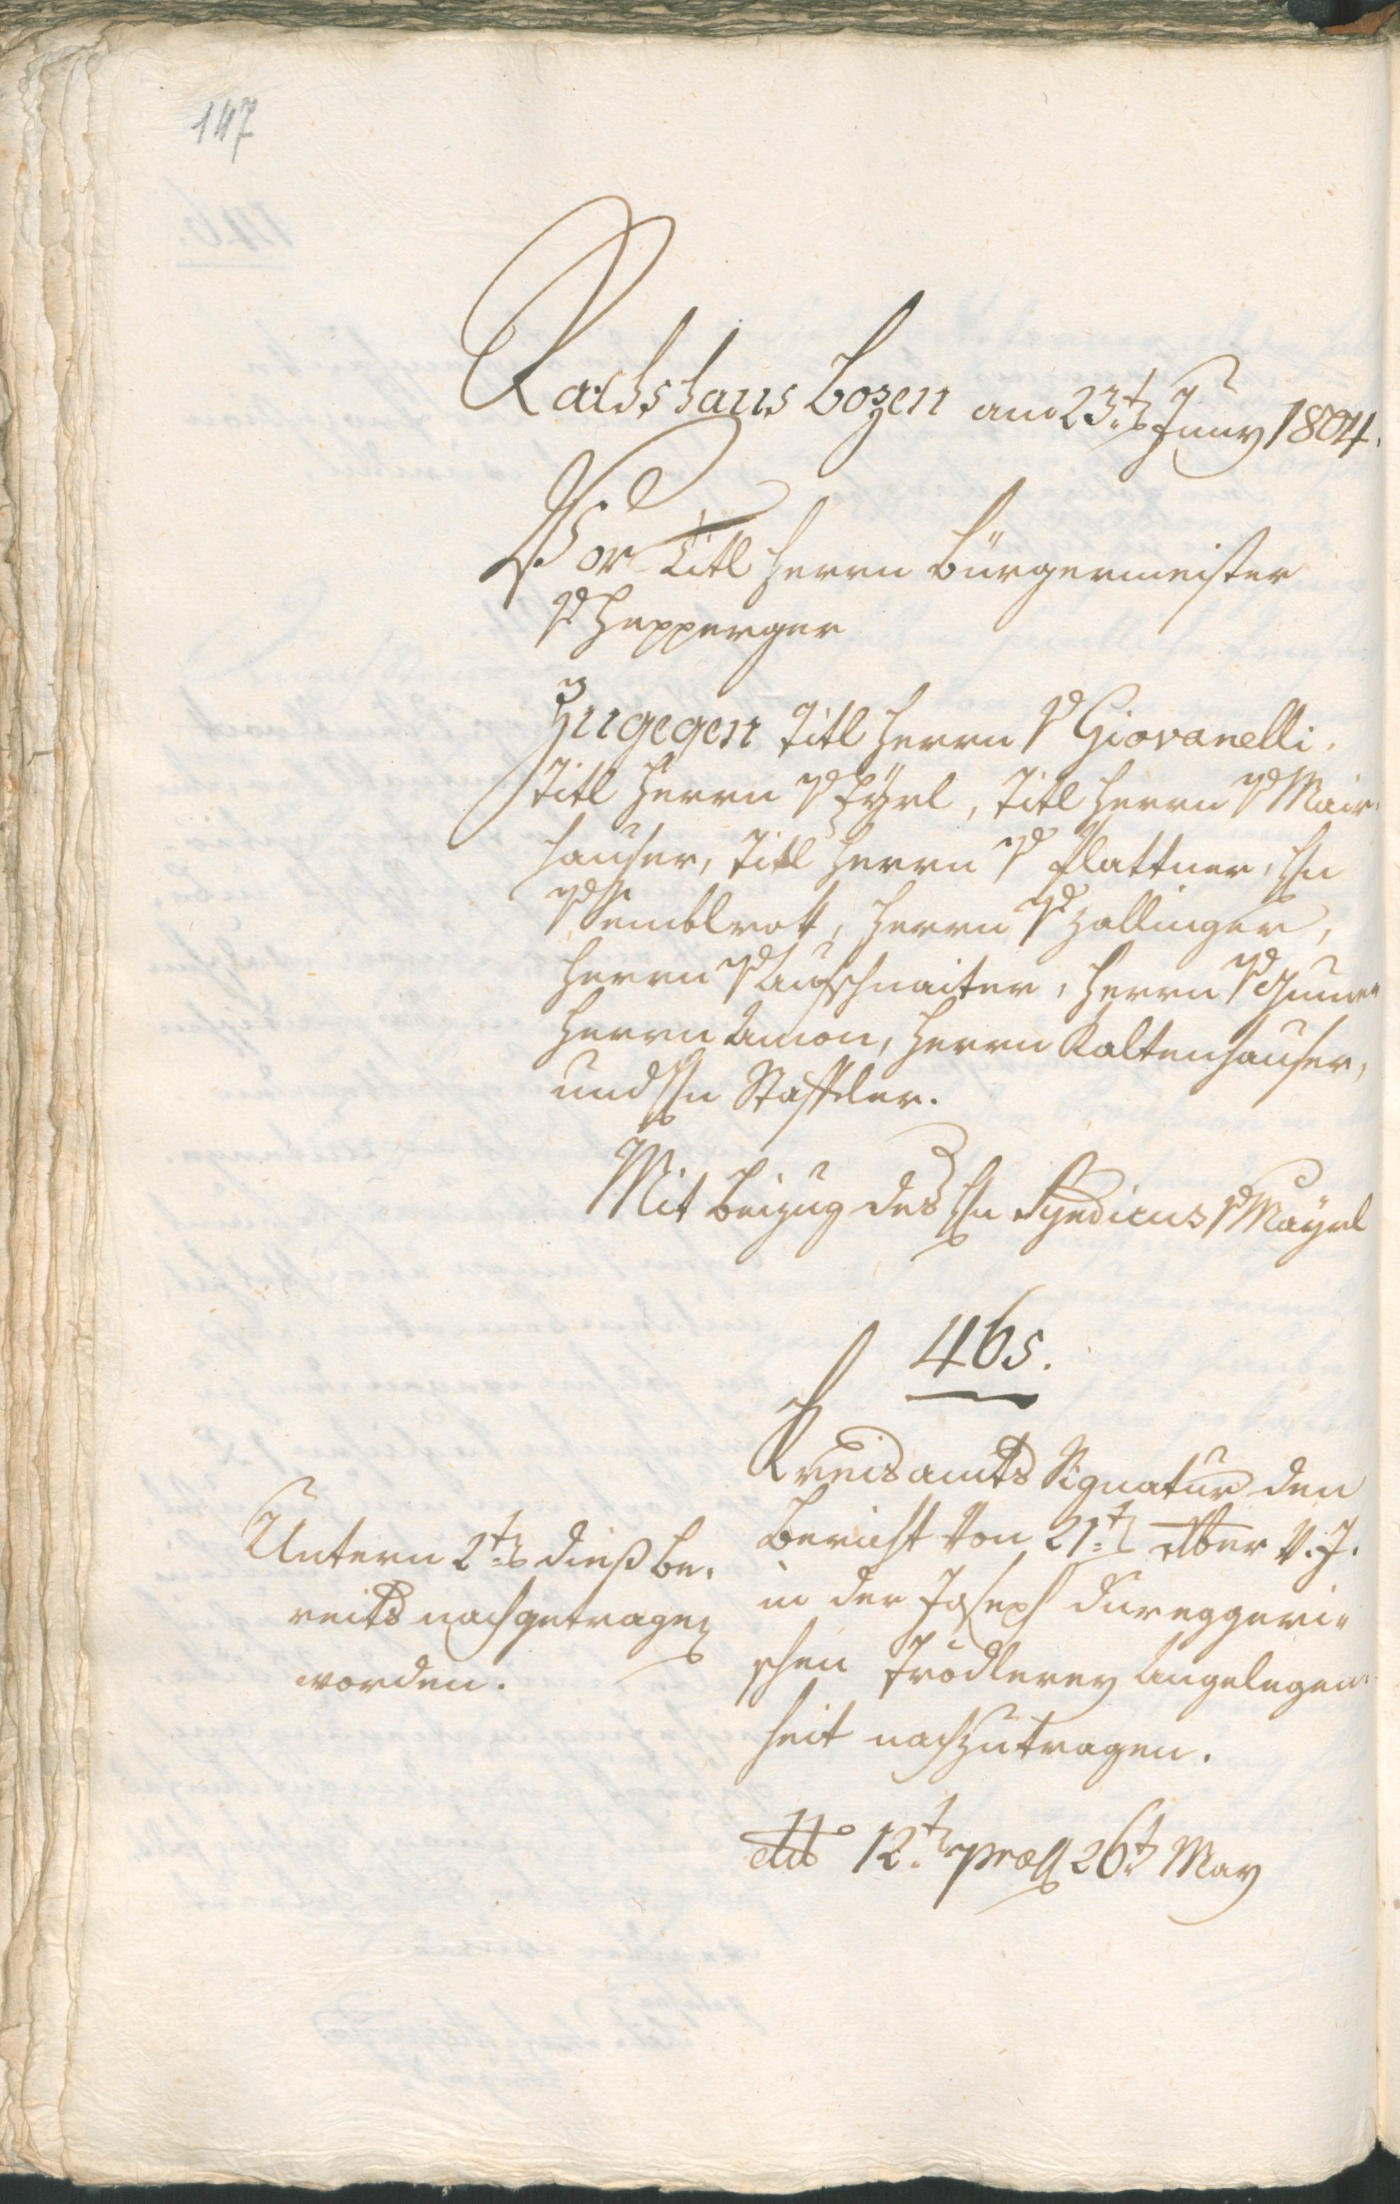 147
Rathshaus Bozen am 23.ten Juny 1804.
Vor Titl Herrn Bürgermeister
v Hepperger
Zugegen Titl Herrn v Giovanelli.
Titl Herrn v Eyrl, Titl Herrn v Mair-
hauser, Titl Herrn v Plattner, Hrn
v Sembl rott, Herrn v Zallinger,
Herrn v Aufschnaiter, Herrn v
Herrn Amon, Herrn Kaltenhauser,
und Hrn Staffler.
Mit Beizug des Hrn Syndicus v Mayrl
465.
Kreisamts Signatur den
Bericht von 21.ten xber v. J.
in der Joseph Dureggeri-
schen Trödlerey Angelegen-
heit nachzutragen.
dto 12.t præs 26.t May
Untern 2.ten dieß be-
reits nachgetragen
worden.